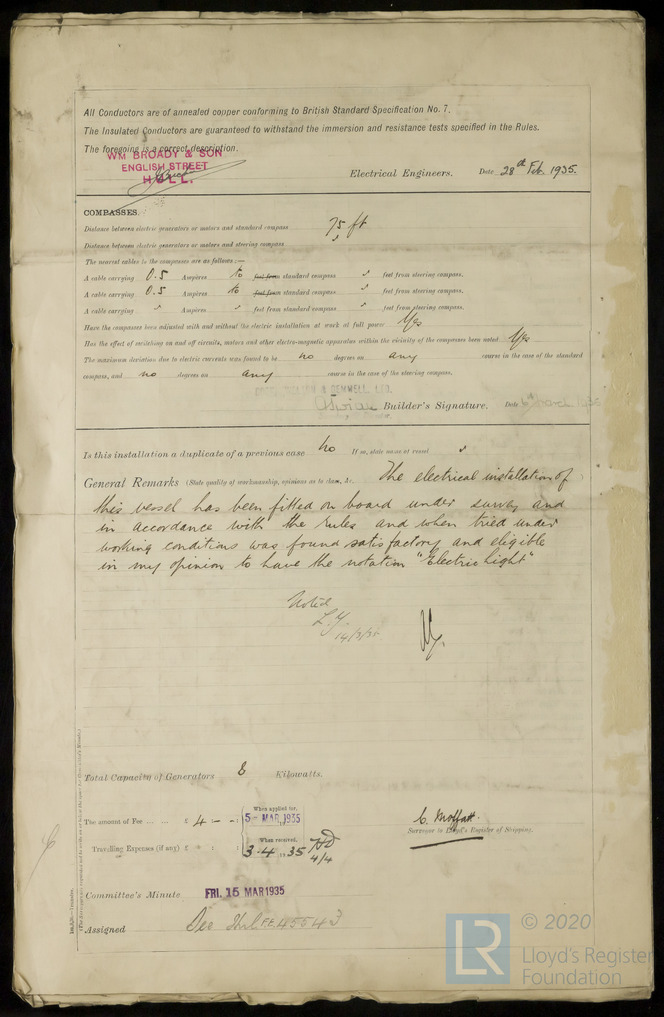 All Conductors are of annealed copper conforming to British Standard Specification No. 7.
The Insulated Conductors are guaranteed to withstand the immersion and resistance tests specified in the Rules.
The foregoing is a correct description.
WM BROADY & SON
ENGLISH STREET
HULL.
Electrical Engineers. Date 28th Feb. 1935.
COMPASSES.
Distance between electric generators or motors and standard compass 75 ft
Distance between electric generators or motors and steering compass "
The nearest cables to the compasses are as follows:—
A cable carrying 0.5 Ampères to feet from standard compass " feet from steering compass.
A cable carrying 0.5 Ampères to feet from standard compass " feet from steering compass.
A cable carrying " Ampères " feet from standard compass " feet from steering compass.
Have the compasses been adjusted with and without the electric installation at work at full power Yes
Has the effect of switching on and off circuits, motors and other electro-magnetic apparatus within the vicinity of the compasses been noted Yes
The maximum deviation due to electric currents was found to be no degrees on any course in the case of the standard
compass, and no degrees on any course in the case of the steering compass.
& GEMMELL, LTD.
Builder's Signature. Date March 1935
Is this installation a duplicate of a previous case No If so, state name of vessel "
General Remarks (State quality of workmanship, opinions as to class, &c. The electrical installation of
this vessel has been fitted on board under survey and
in accordance with the rules and when tried under
working conditions was found satisfactory and eligible
in my opinion to have the notation "Electric Light"
Noted
L.Y.
14/3/35
Total Capacity of Generators 8 Kilowatts.
The amount of Fee ... ... £ 4 : - : - When applied for, 5 - MAR 1935
Travelling Expenses (if any) £ : : When received, 3.4.1935
4/4
C. Moffatt.
Surveyor to Lloyd's Register of Shipping.
Committee's Minute FRI. 15 MAR 1935
Assigned See Hul F.E. 45043
© 2020
LR
Lloyd's Register
Foundation